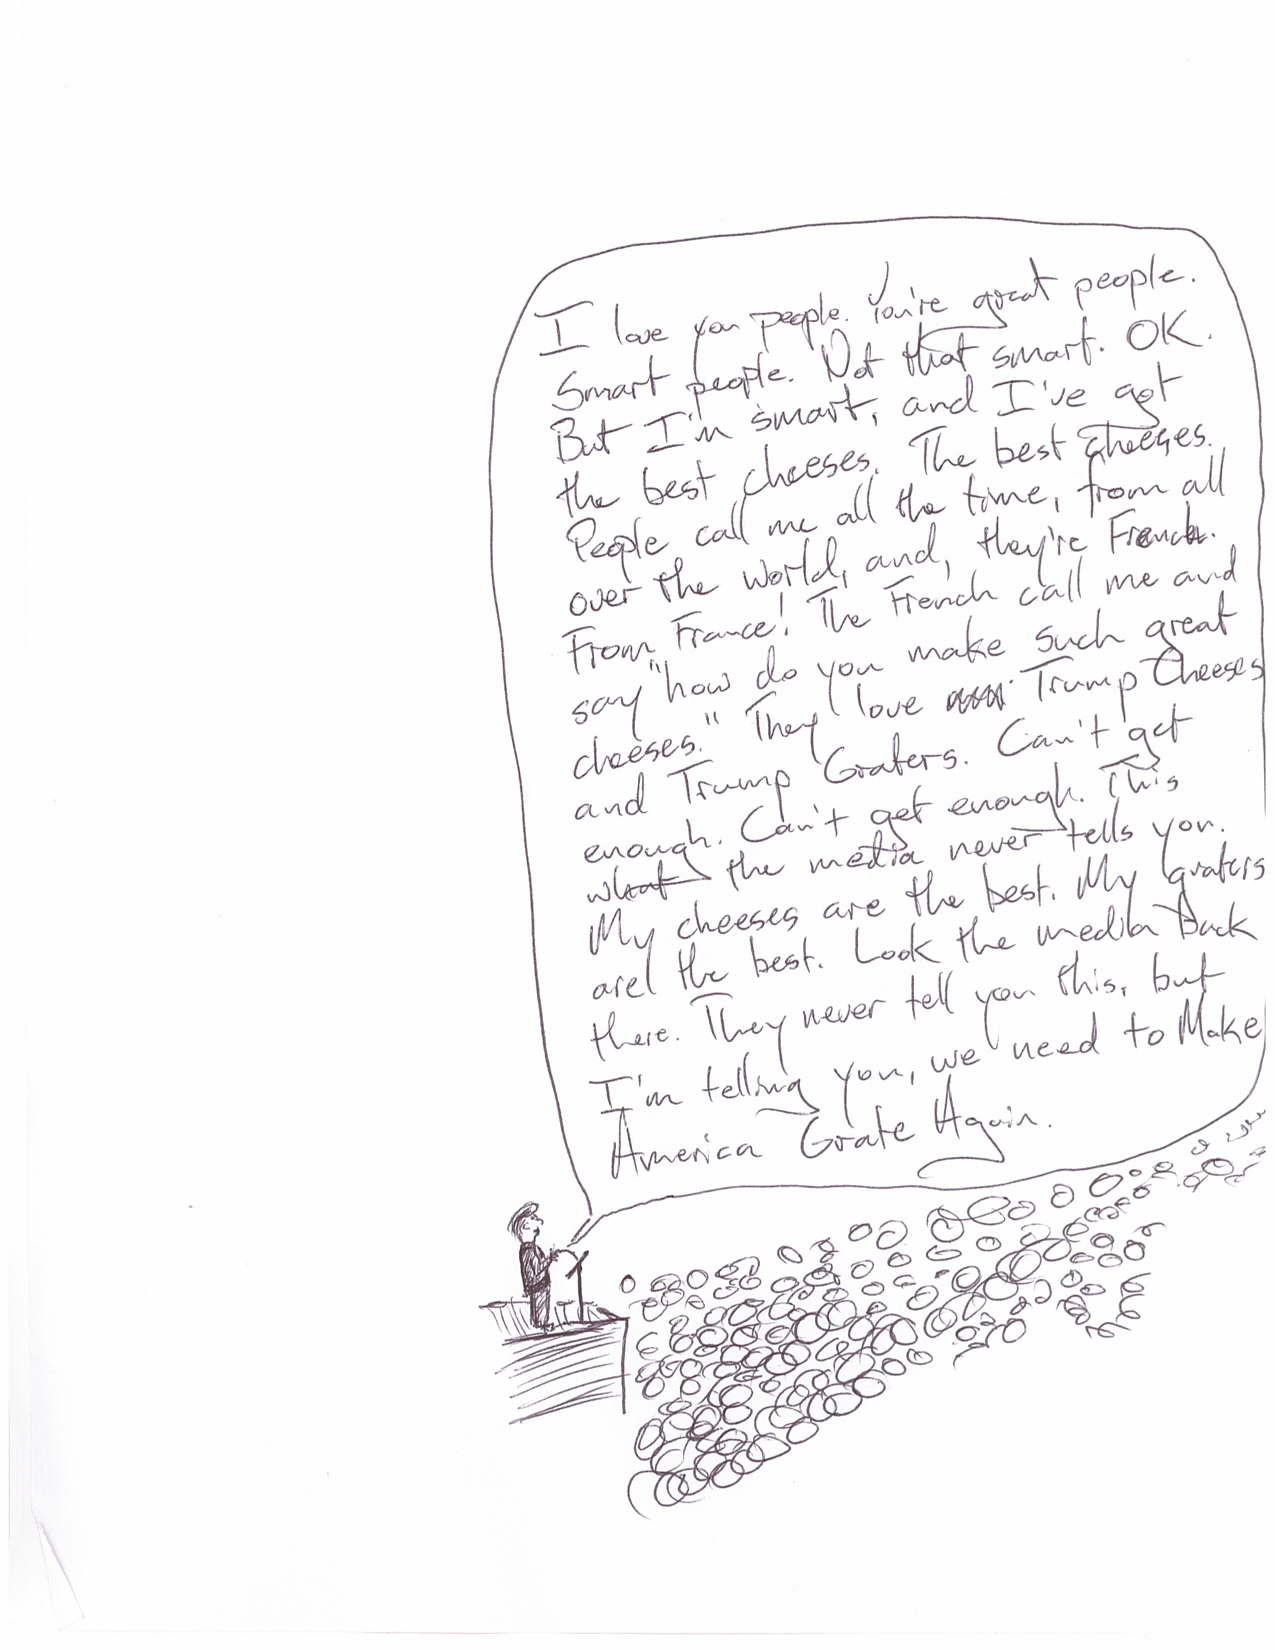 I love you people. You're great people.
Smart people. Not that smart. OK.
But I'm smart, and I've got
the best cheeses. The best cheeses.
People call me all the time, from all
over the world, and, they're French.
From France! The French call me and
say "how do you make such great
cheeses." They love Trump Cheeses
and Trump Graters. Can't get
enough. Can't get enough. This
what the media never tells you.
My cheeses are the best. My graters
are the best. Look the media back
there. They never tell you this, but
I'm telling you, we need to Make
America Grate Again.